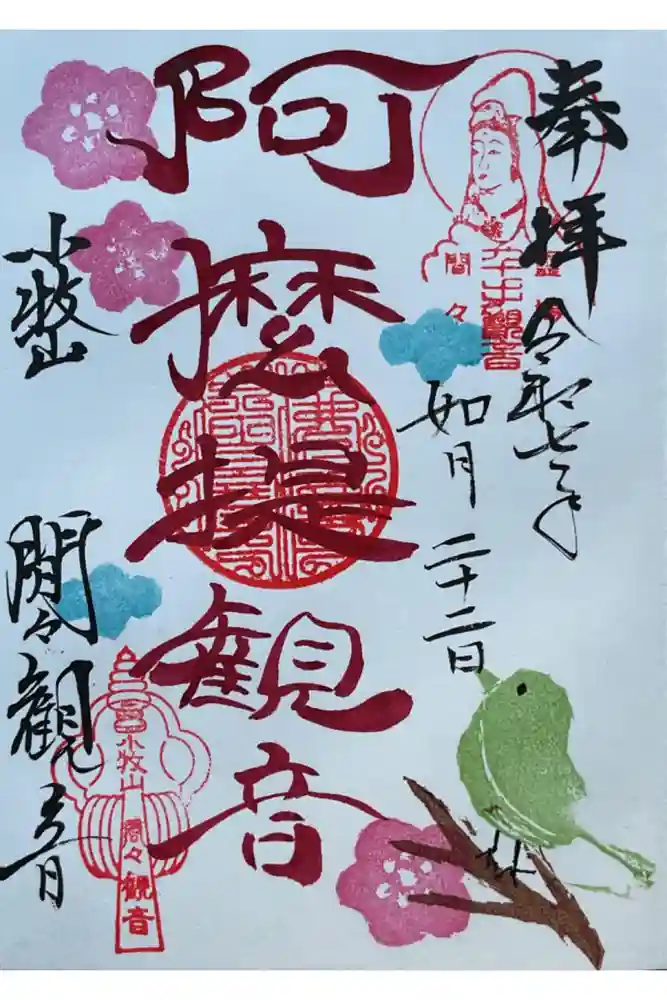 奉拝
令和七年
如月
二十二日
千手観音
間々
阿麼提観音
小牧山
間々観音
小牧山
間々観音